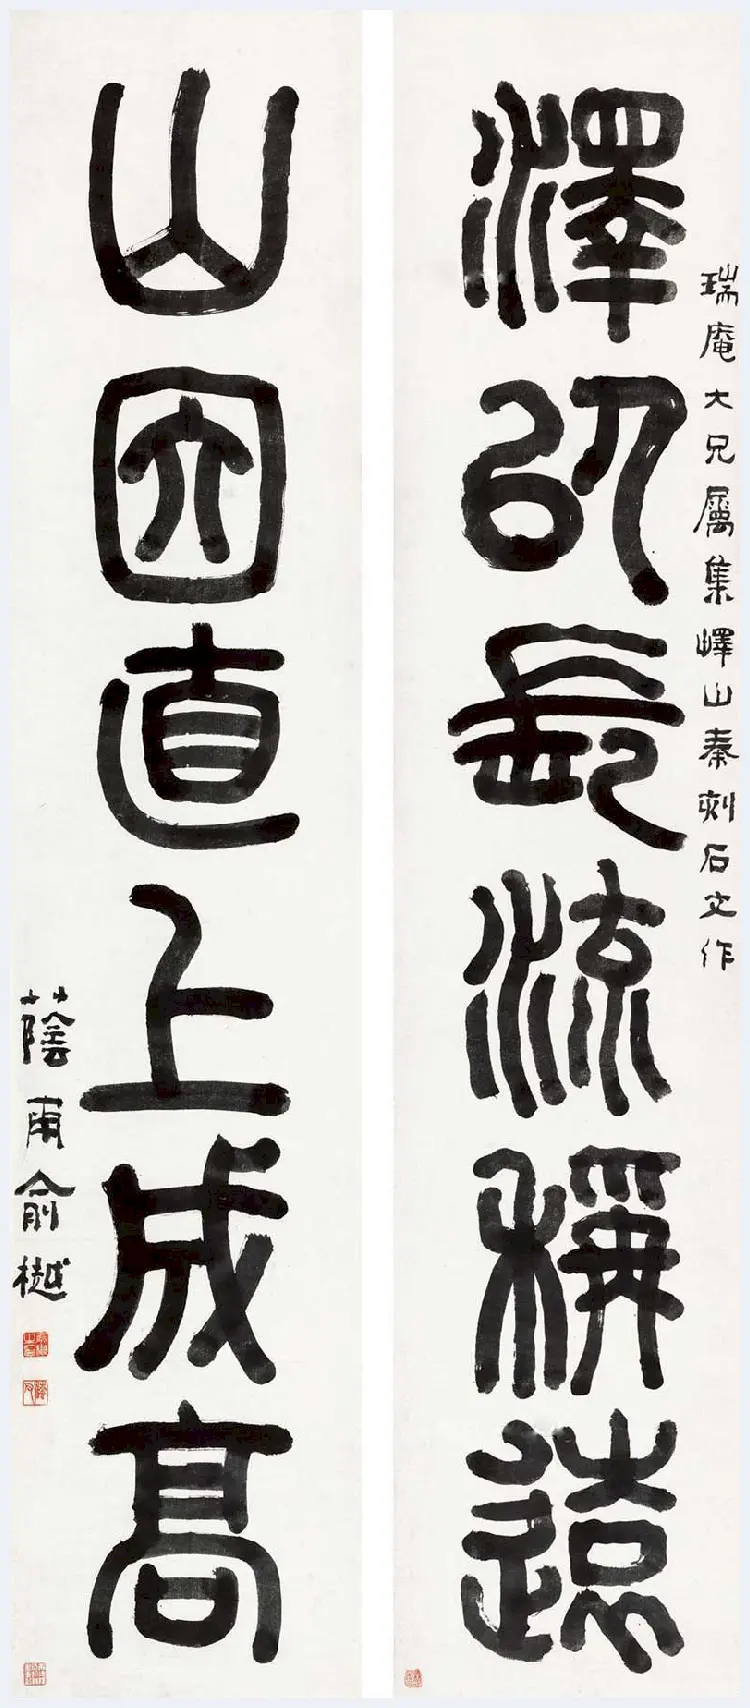 瑞庵大兄屬集嶧山秦刻石文作
澤以長流稱遠
山因直上成高
蔭甫俞樾